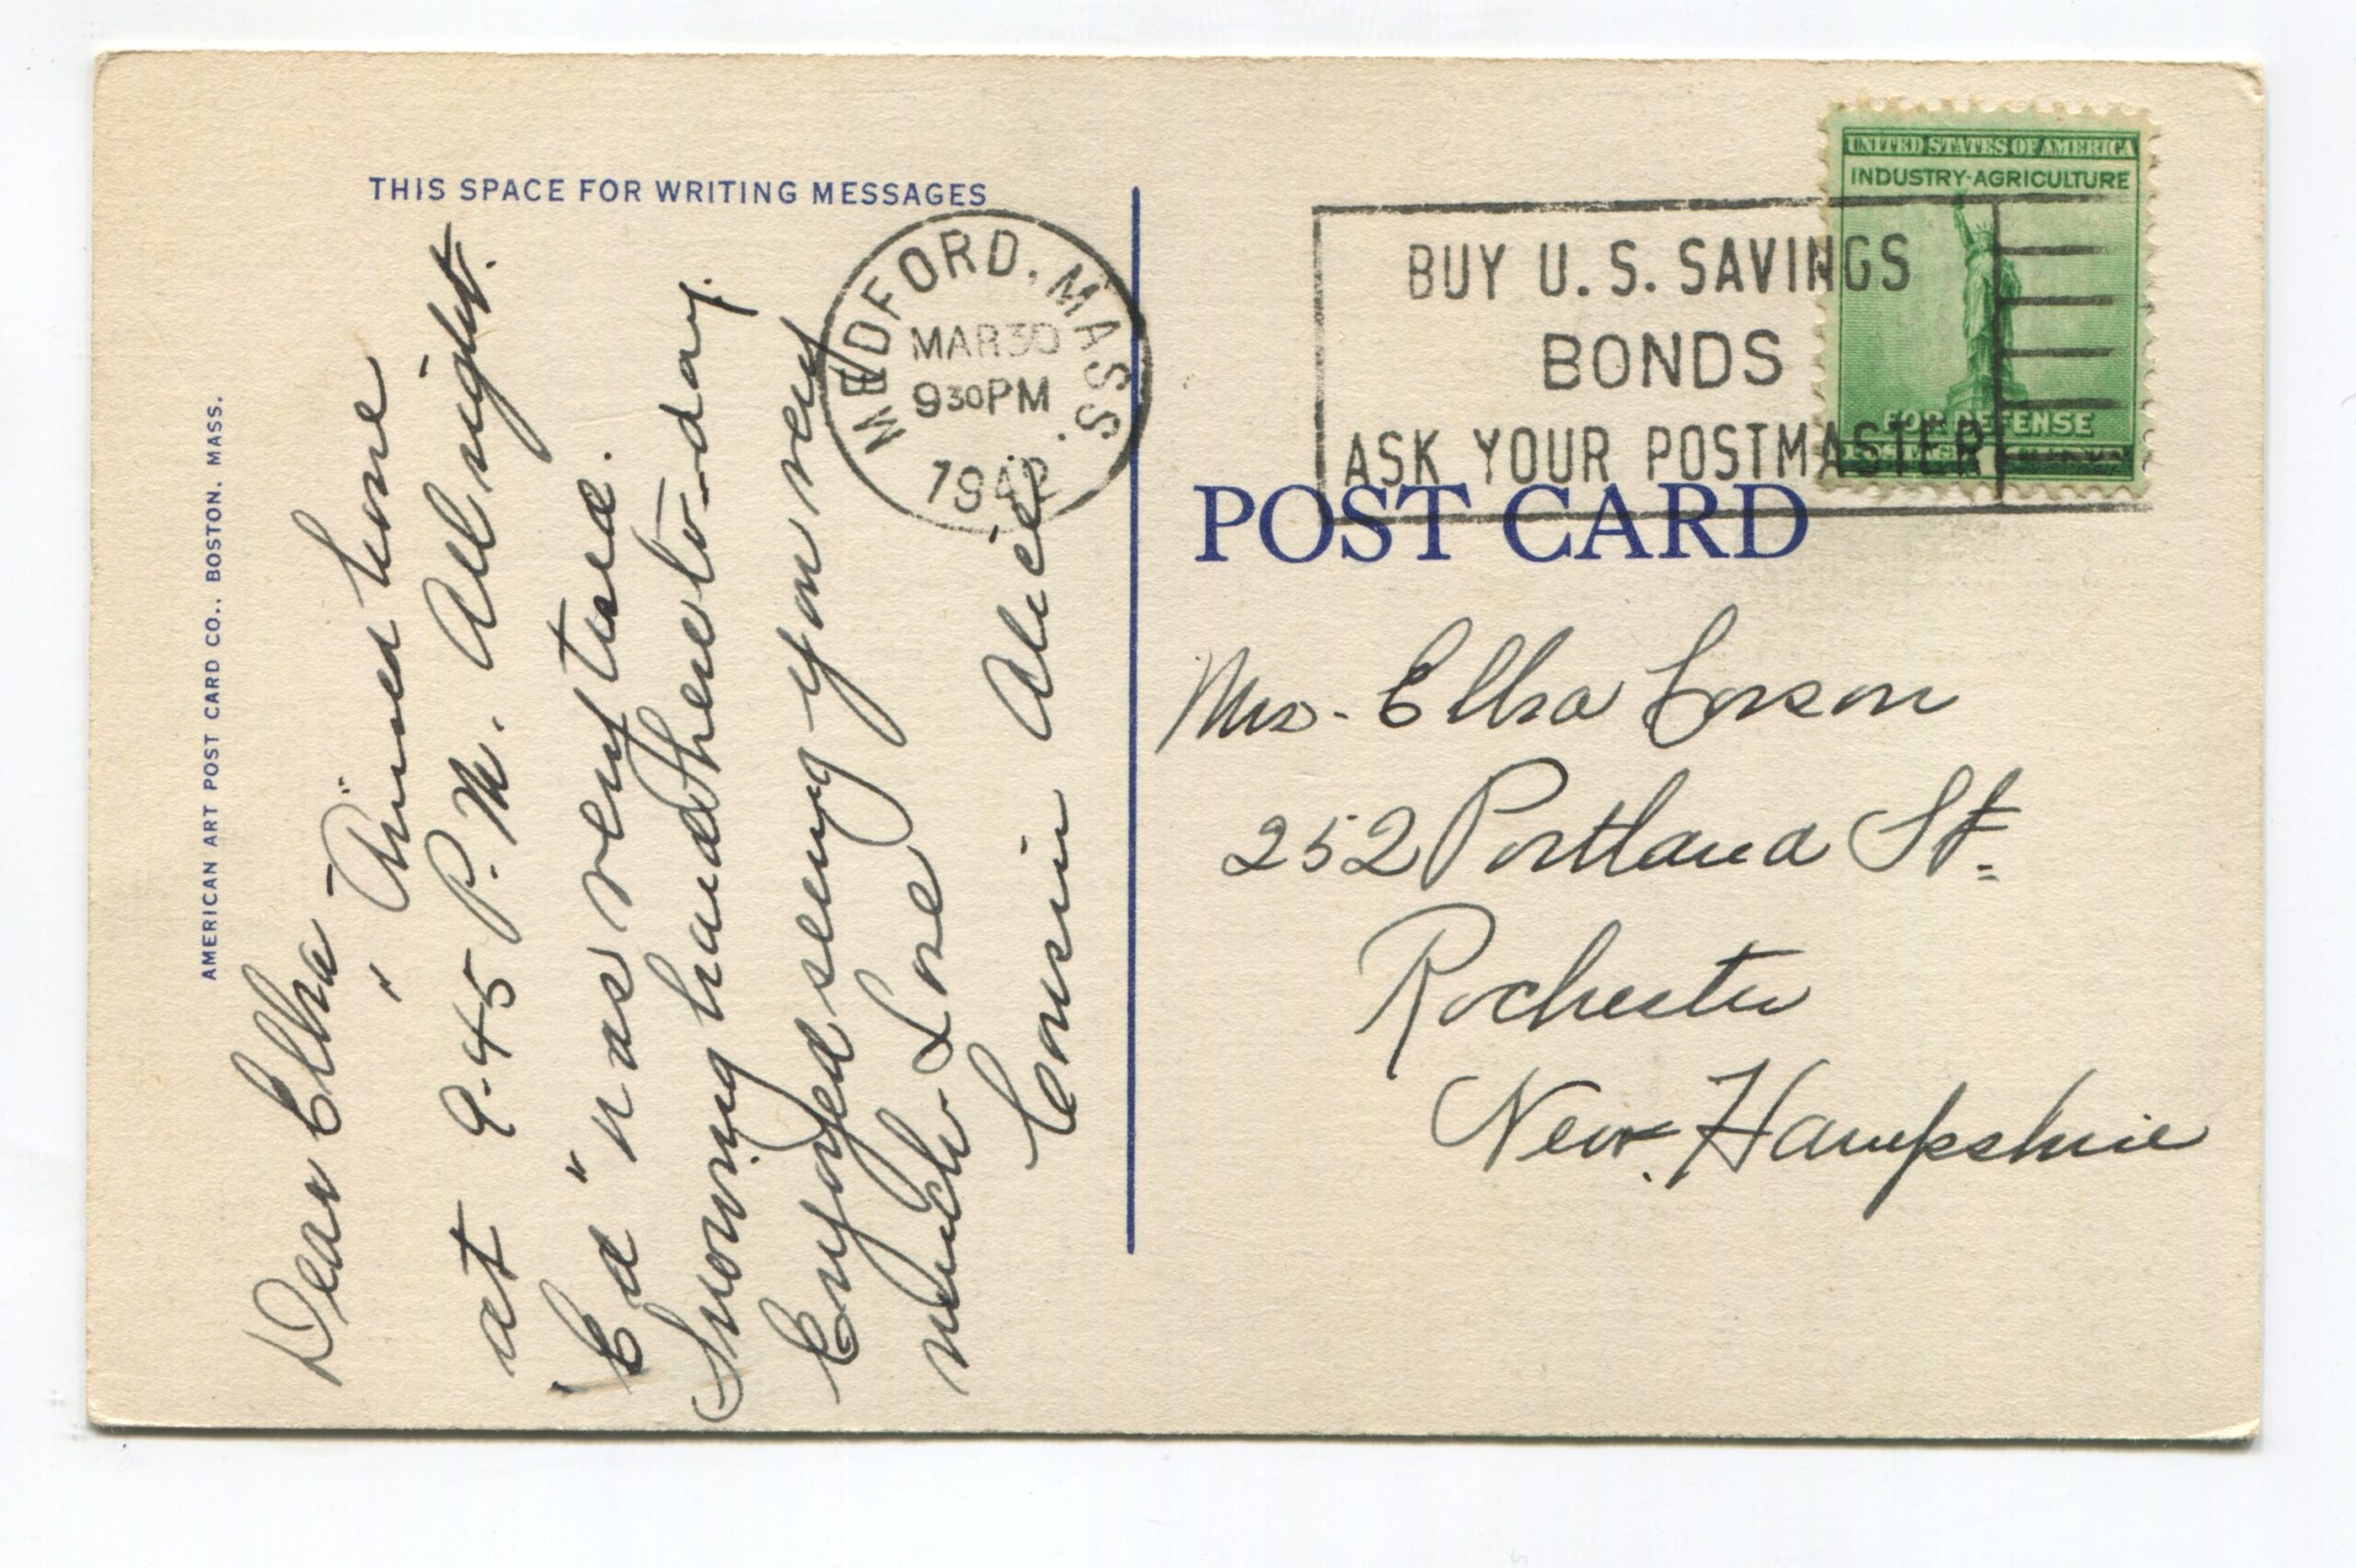 THIS SPACE FOR WRITING MESSAGES
AMERICAN ART POST CARD CO., BOSTON, MASS.
Dear Elha
"Arrived home
at 9.45 P.M. All right.
"Ed" was very tired.
Snowing hard here to-day.
Enjoyed seeing you very
much Love
Cousin Alice
MEDFORD, MASS.
MAR 30
9 30 PM
1942
BUY U.S. SAVINGS
BONDS
ASK YOUR POSTMASTER
UNITED STATES OF AMERICA
INDUSTRY·AGRICULTURE
FOR DEFENSE
POST CARD
Mrs. Elha Corson
252 Portland St.
Rochester
New Hampshire